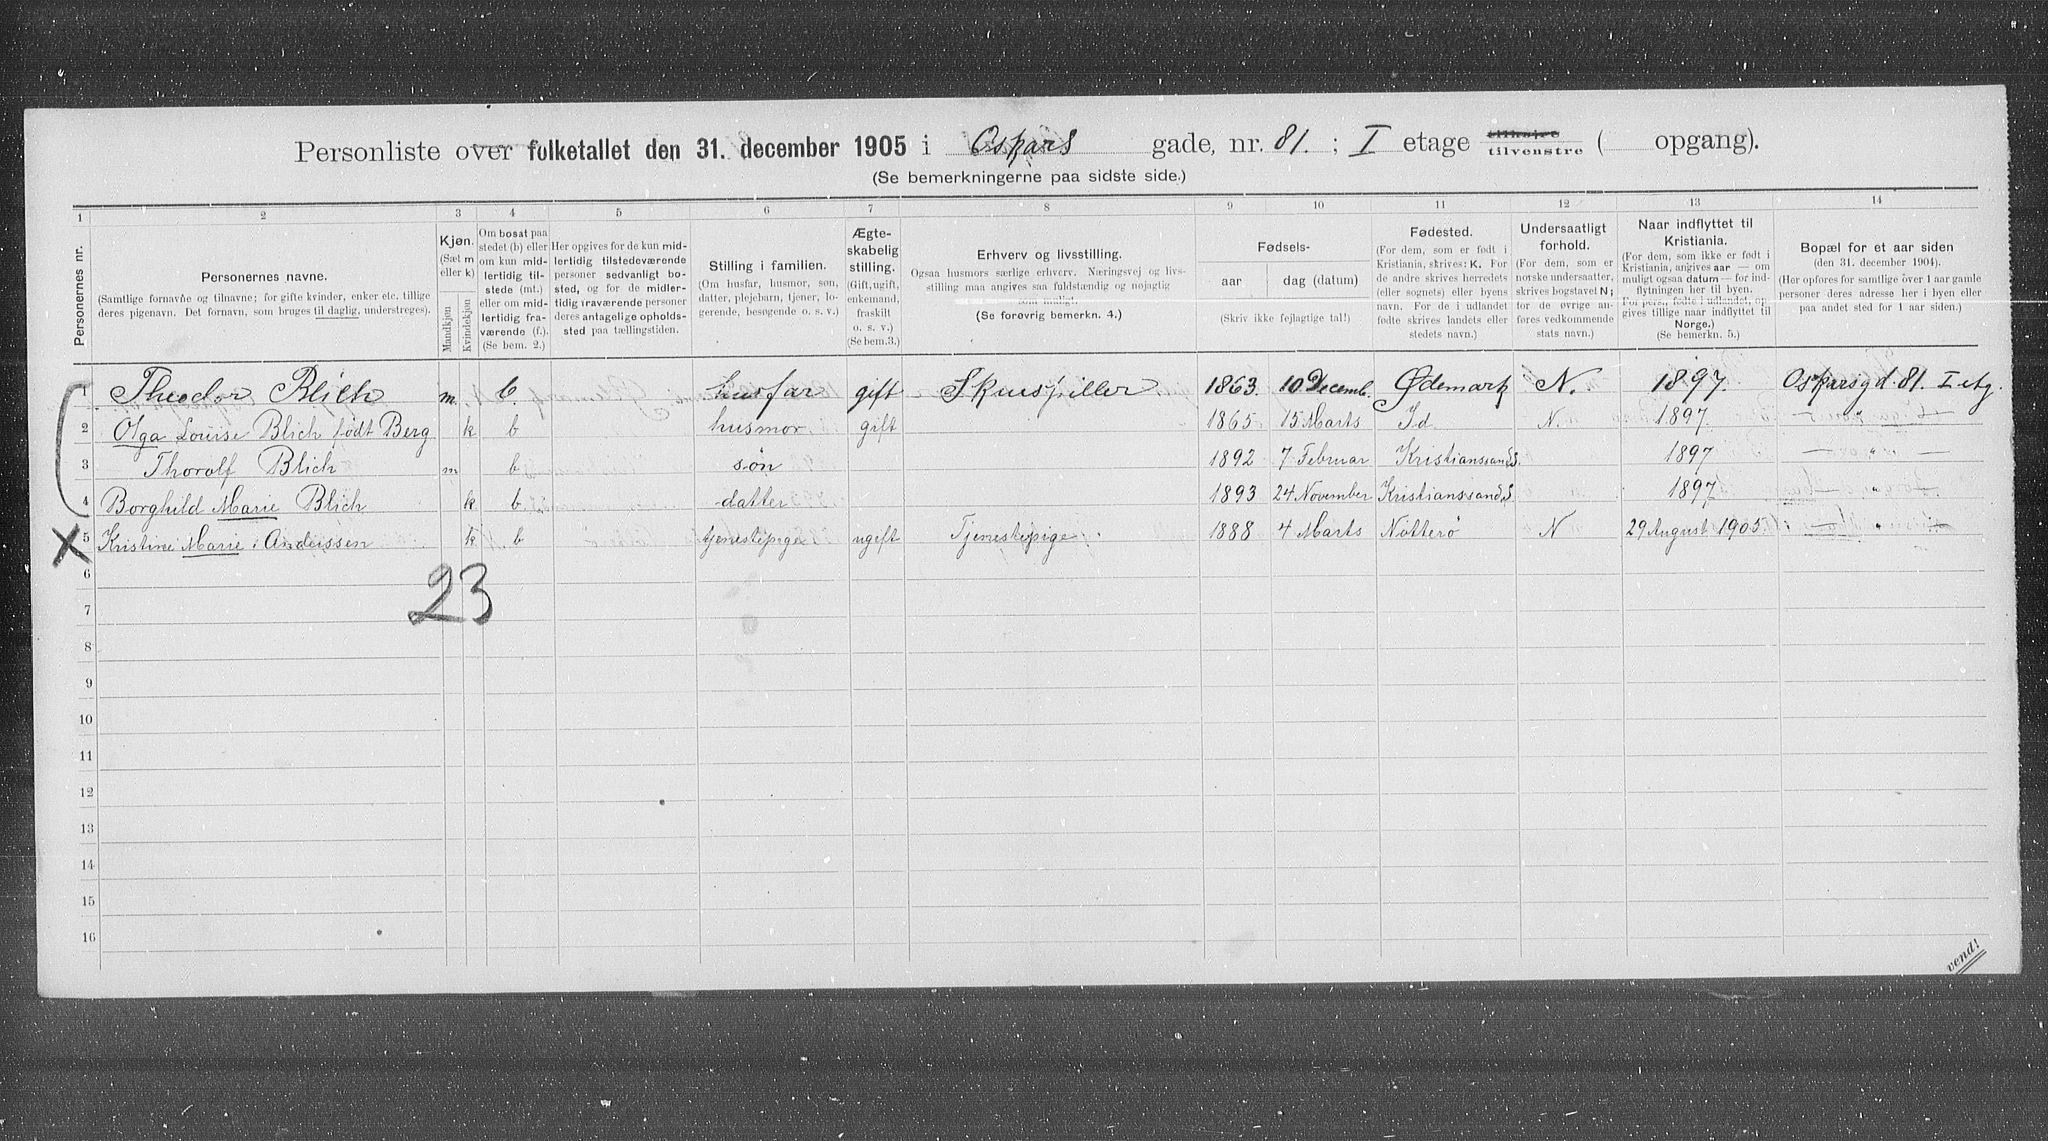 Personliste over folketallet den 31. december 1905 i Oskars gade, nr. 81. ; I etage tilhøire tilvenstre ( opgang).
(Se bemerkningerne paa sidste side.)
1 2 3 4 5 6 7 8 9 10 11 12 13 14
Personernes nr.
Personernes navne.
(Samtlige fornavñe og tilnavne; for gifte kvinder, enker etc. tillige
deres pigenavn. Det fornavn, som bruges til daglig, understreges).
Kjøn.
(Sæt m
eller k)
Mandkjøn
Kvindekjøn
Om bosat paa
stedet (b) eller
om kun mid-
lertidig til-
stede (mt.)
eller om mid-
lertidig fra-
værende (f.).
(Se bem. 2.)
Her opgives for de kun mid-
lertidig tilstedeværende
personer sedvanligt bo-
sted, og for de midler-
tidig fraværende personer
deres antagelige opholds-
sted paa tællingstiden.
Stilling i familien.
(Om husfar, husmor, søn,
datter, plejebarn, tjener, lo-
gerende, besøgende o. s. v.)
Ægte-
skabelig
stilling.
(Gift, ugift,
enkemand,
fraskilt
o. s. v.)
(Se bem. 3.)
Erhverv og livsstilling.
Ogsaa husmors særlige erhverv. Næringsvej og livs-
stilling maa angives saa fuldstændig og nøjagtig
som muligt.
(Se forøvrig bemerkn. 4.)
Fødsels-
aar dag (datum)
(Skriv ikke fejlagtige tal!)
Fødested.
(For dem, som er født i
Kristiania, skrives: K. For
de andre skrives herredets
(eller sognets) eller byens
navn. For de i udlandet
fødte skrives landets eller
stedets navn.)
Undersaatligt
forhold.
(For dem, som er
norske undersaatter,
skrives bogstavet N;
for de øvrige an-
føres vedkommende
stats navn.)
Naar indflyttet til
Kristiania.
(For dem, som ikke er født i
Kristiania, angives aar — om
muligt ogsaa datum — for ind-
flytningen her til byen.
For pers. fødte i udlandet, op-
gives tillige naar indflyttet til
Norge.)
(Se bemerkn. 5.)
Bopæl for et aar siden
(den 31. december 1904).
(Her opføres for samtlige over 1 aar gamle
personer deres adresse her i byen eller
paa andet sted for 1 aar siden.)
1 Theodor Blich m. b. husfar gift Skuespiller 1863. 10 Decemb. Ødemark N. 1897. Oskarsgd. 81. I etg.
2 Olga Louise Blich født Berg k b husmor gift 1865 15 Marts Id N 1897 — „ —
3 Thorolf Blich m b søn 1892 7 Februar Kristianssand S. 1897 — „ —
4 Borghild Marie Blich k b datter 1893 24 November Kristianssand S 1897 — „ —
X 5 Kristine Marie Anderssen k b tjenestepige ugift Tjenestepige 1888 4 Marts Nøtterø N 29 August 1905 — „ —
6
23
7
8
9
10
11
12
13
14
15
16
vend!